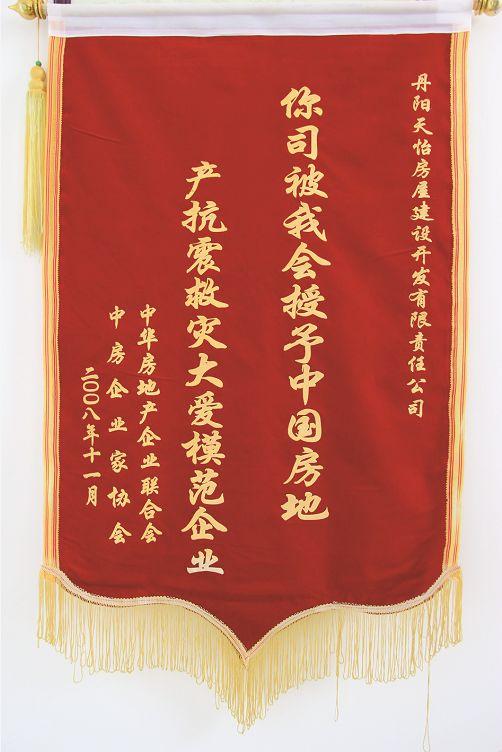 丹阳天怡房屋建设开发有限责任公司
你司被我会授予中国房地
产抗震救灾大爱模范企业
中华房地产企业联合会
中房企业家协会
二〇〇八年十一月